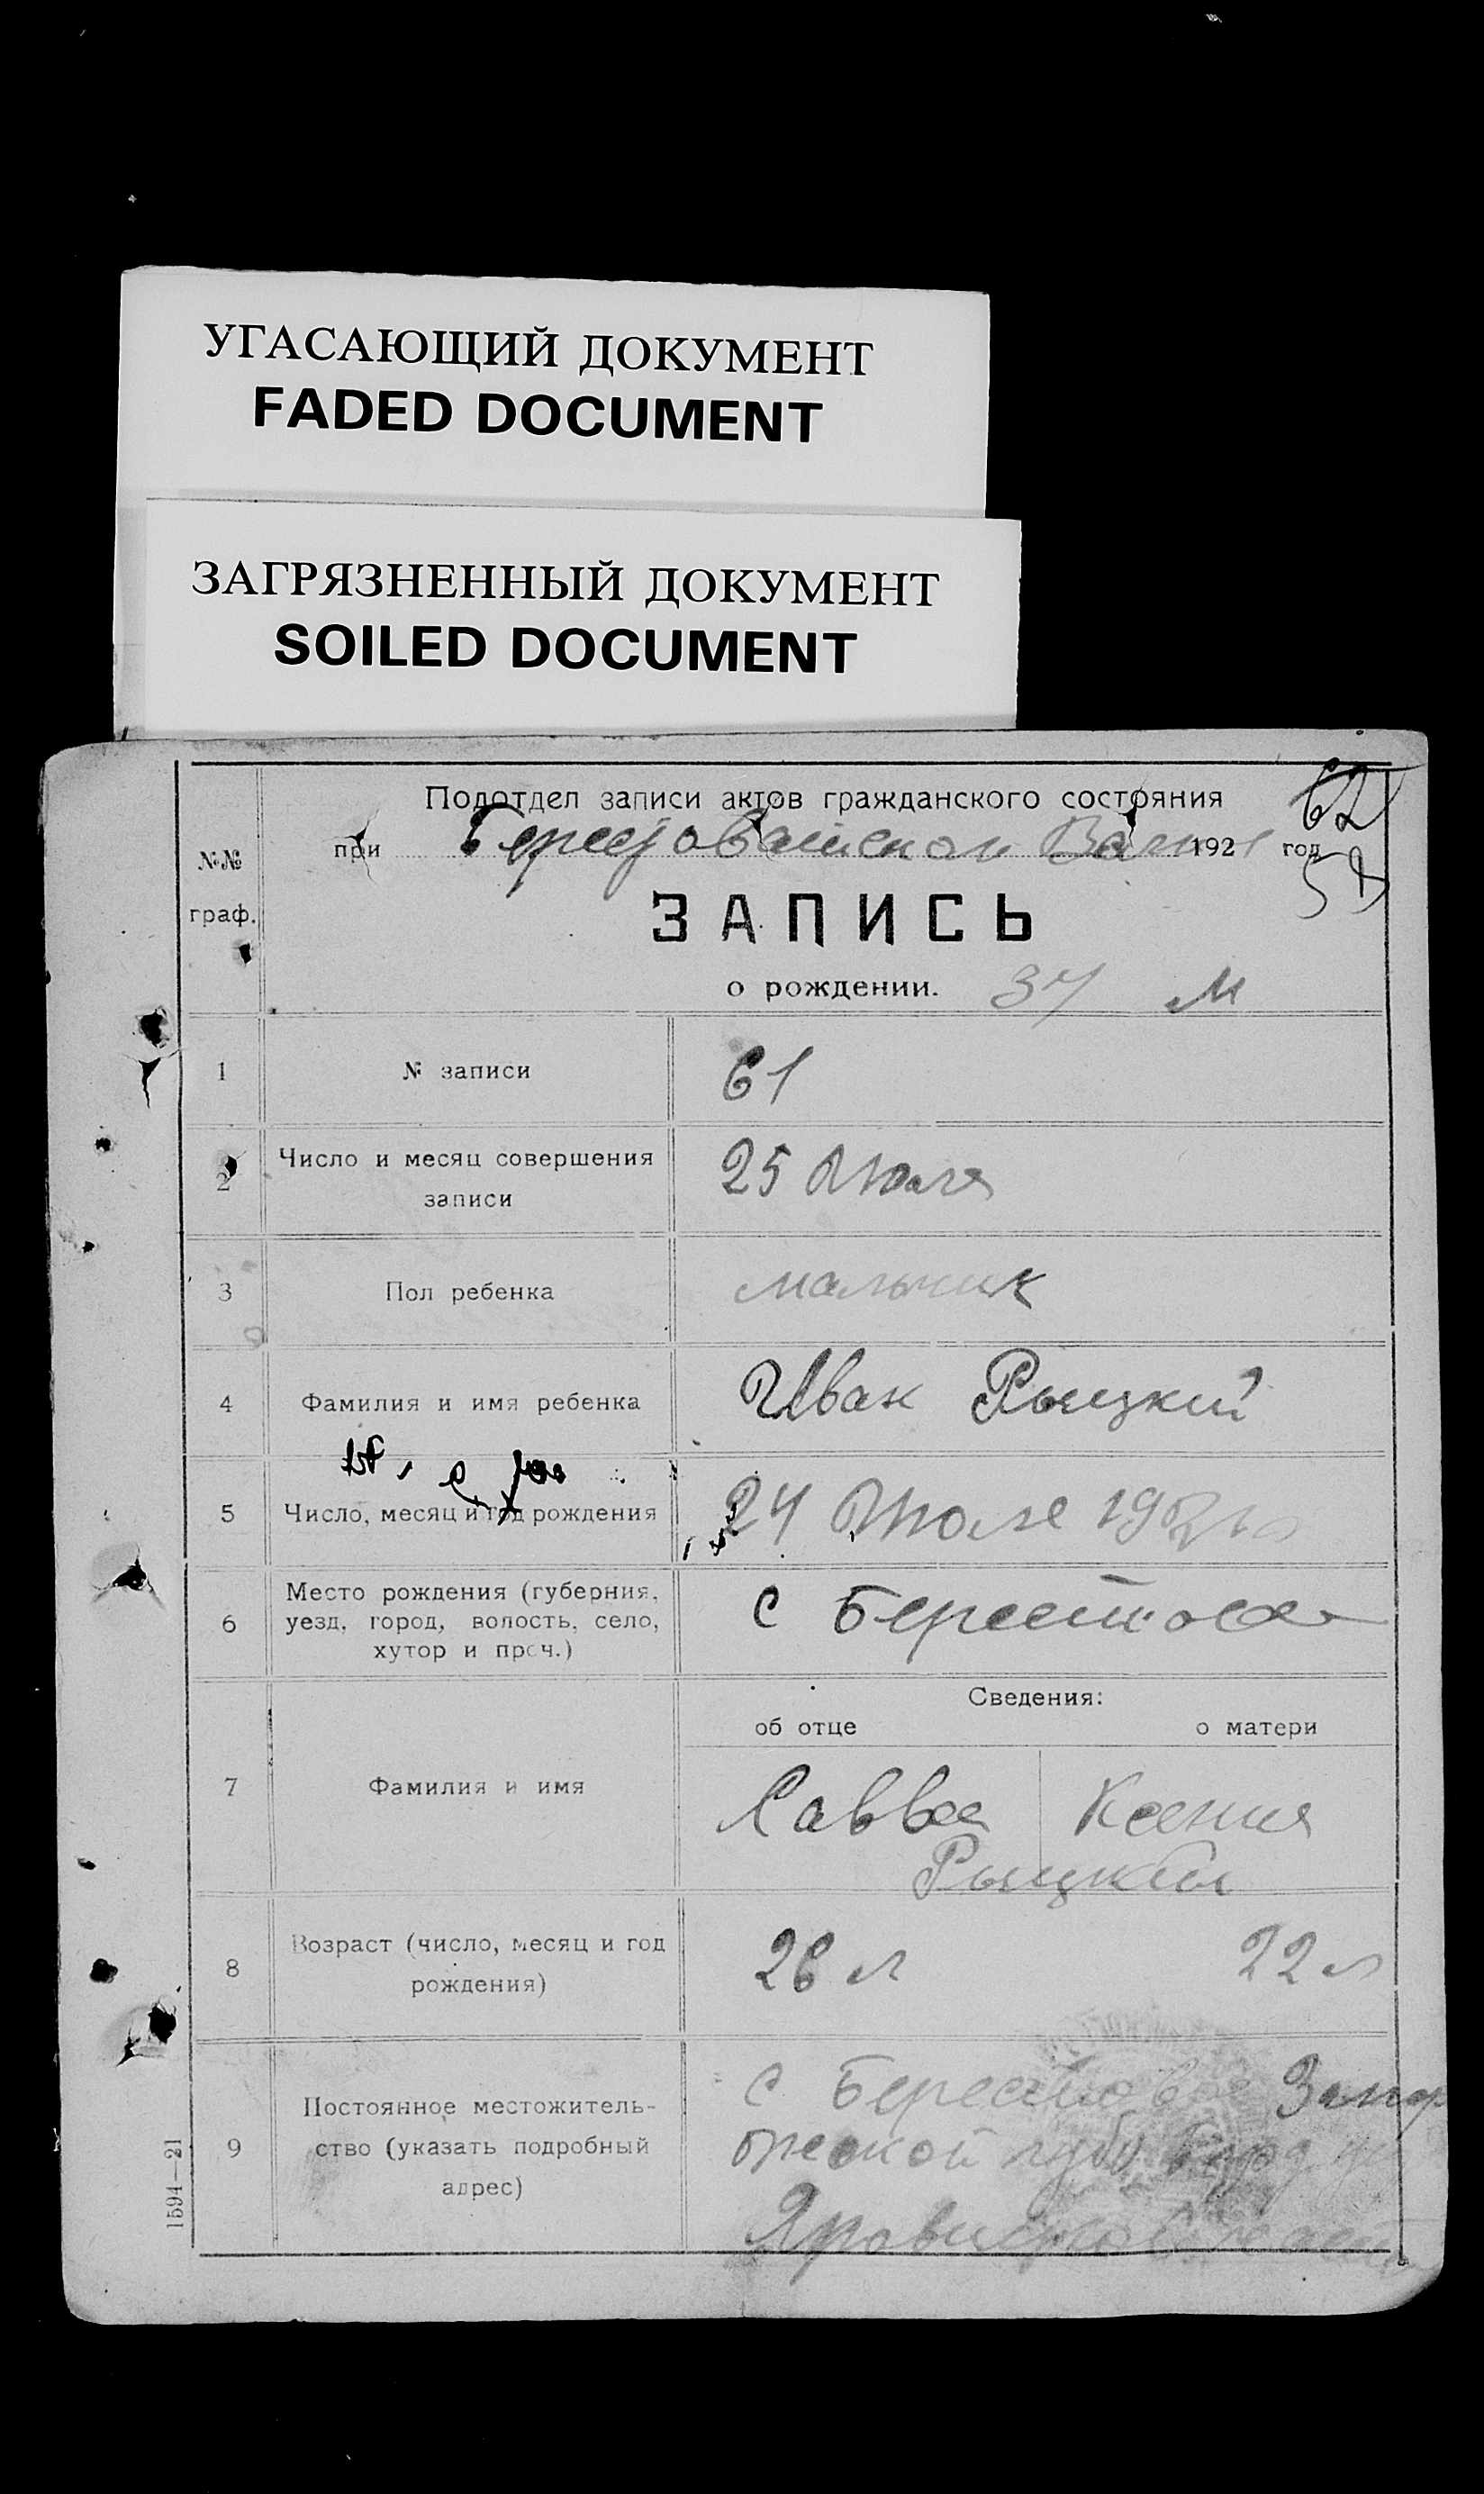 УГАСАЮЩИЙ ДОКУМЕНТ
FADED DOCUMENT
ЗАГРЯЗНЕННЫЙ ДОКУМЕНТ
SOILED DOCUMENT
62
Подотдел записи актов гражданского состояния
№№
при 192 год
граф.
ЗАПИСЬ
о рождении. 37 М
1 № записи 61
2 Число и месяц совершения
записи
25 Июля
3 Пол ребенка мальчик
4 Фамилия и имя ребенка Иван Рыцкий
5 Число, месяц и год рождения 24 Июля 192
6 Место рождения (губерния,
уезд, город, волость, село,
хутор и проч.)
с Берестовое
Сведения:
об отце о матери
7 Фамилия и имя Савва Ксения
Рыцкие
8 Возраст (число, месяц и год
рождения)
26 л 22 л
9 Постоянное местожитель-
ство (указать подробный
адрес)
с Берестовое Запор
ожской губ
1594—21